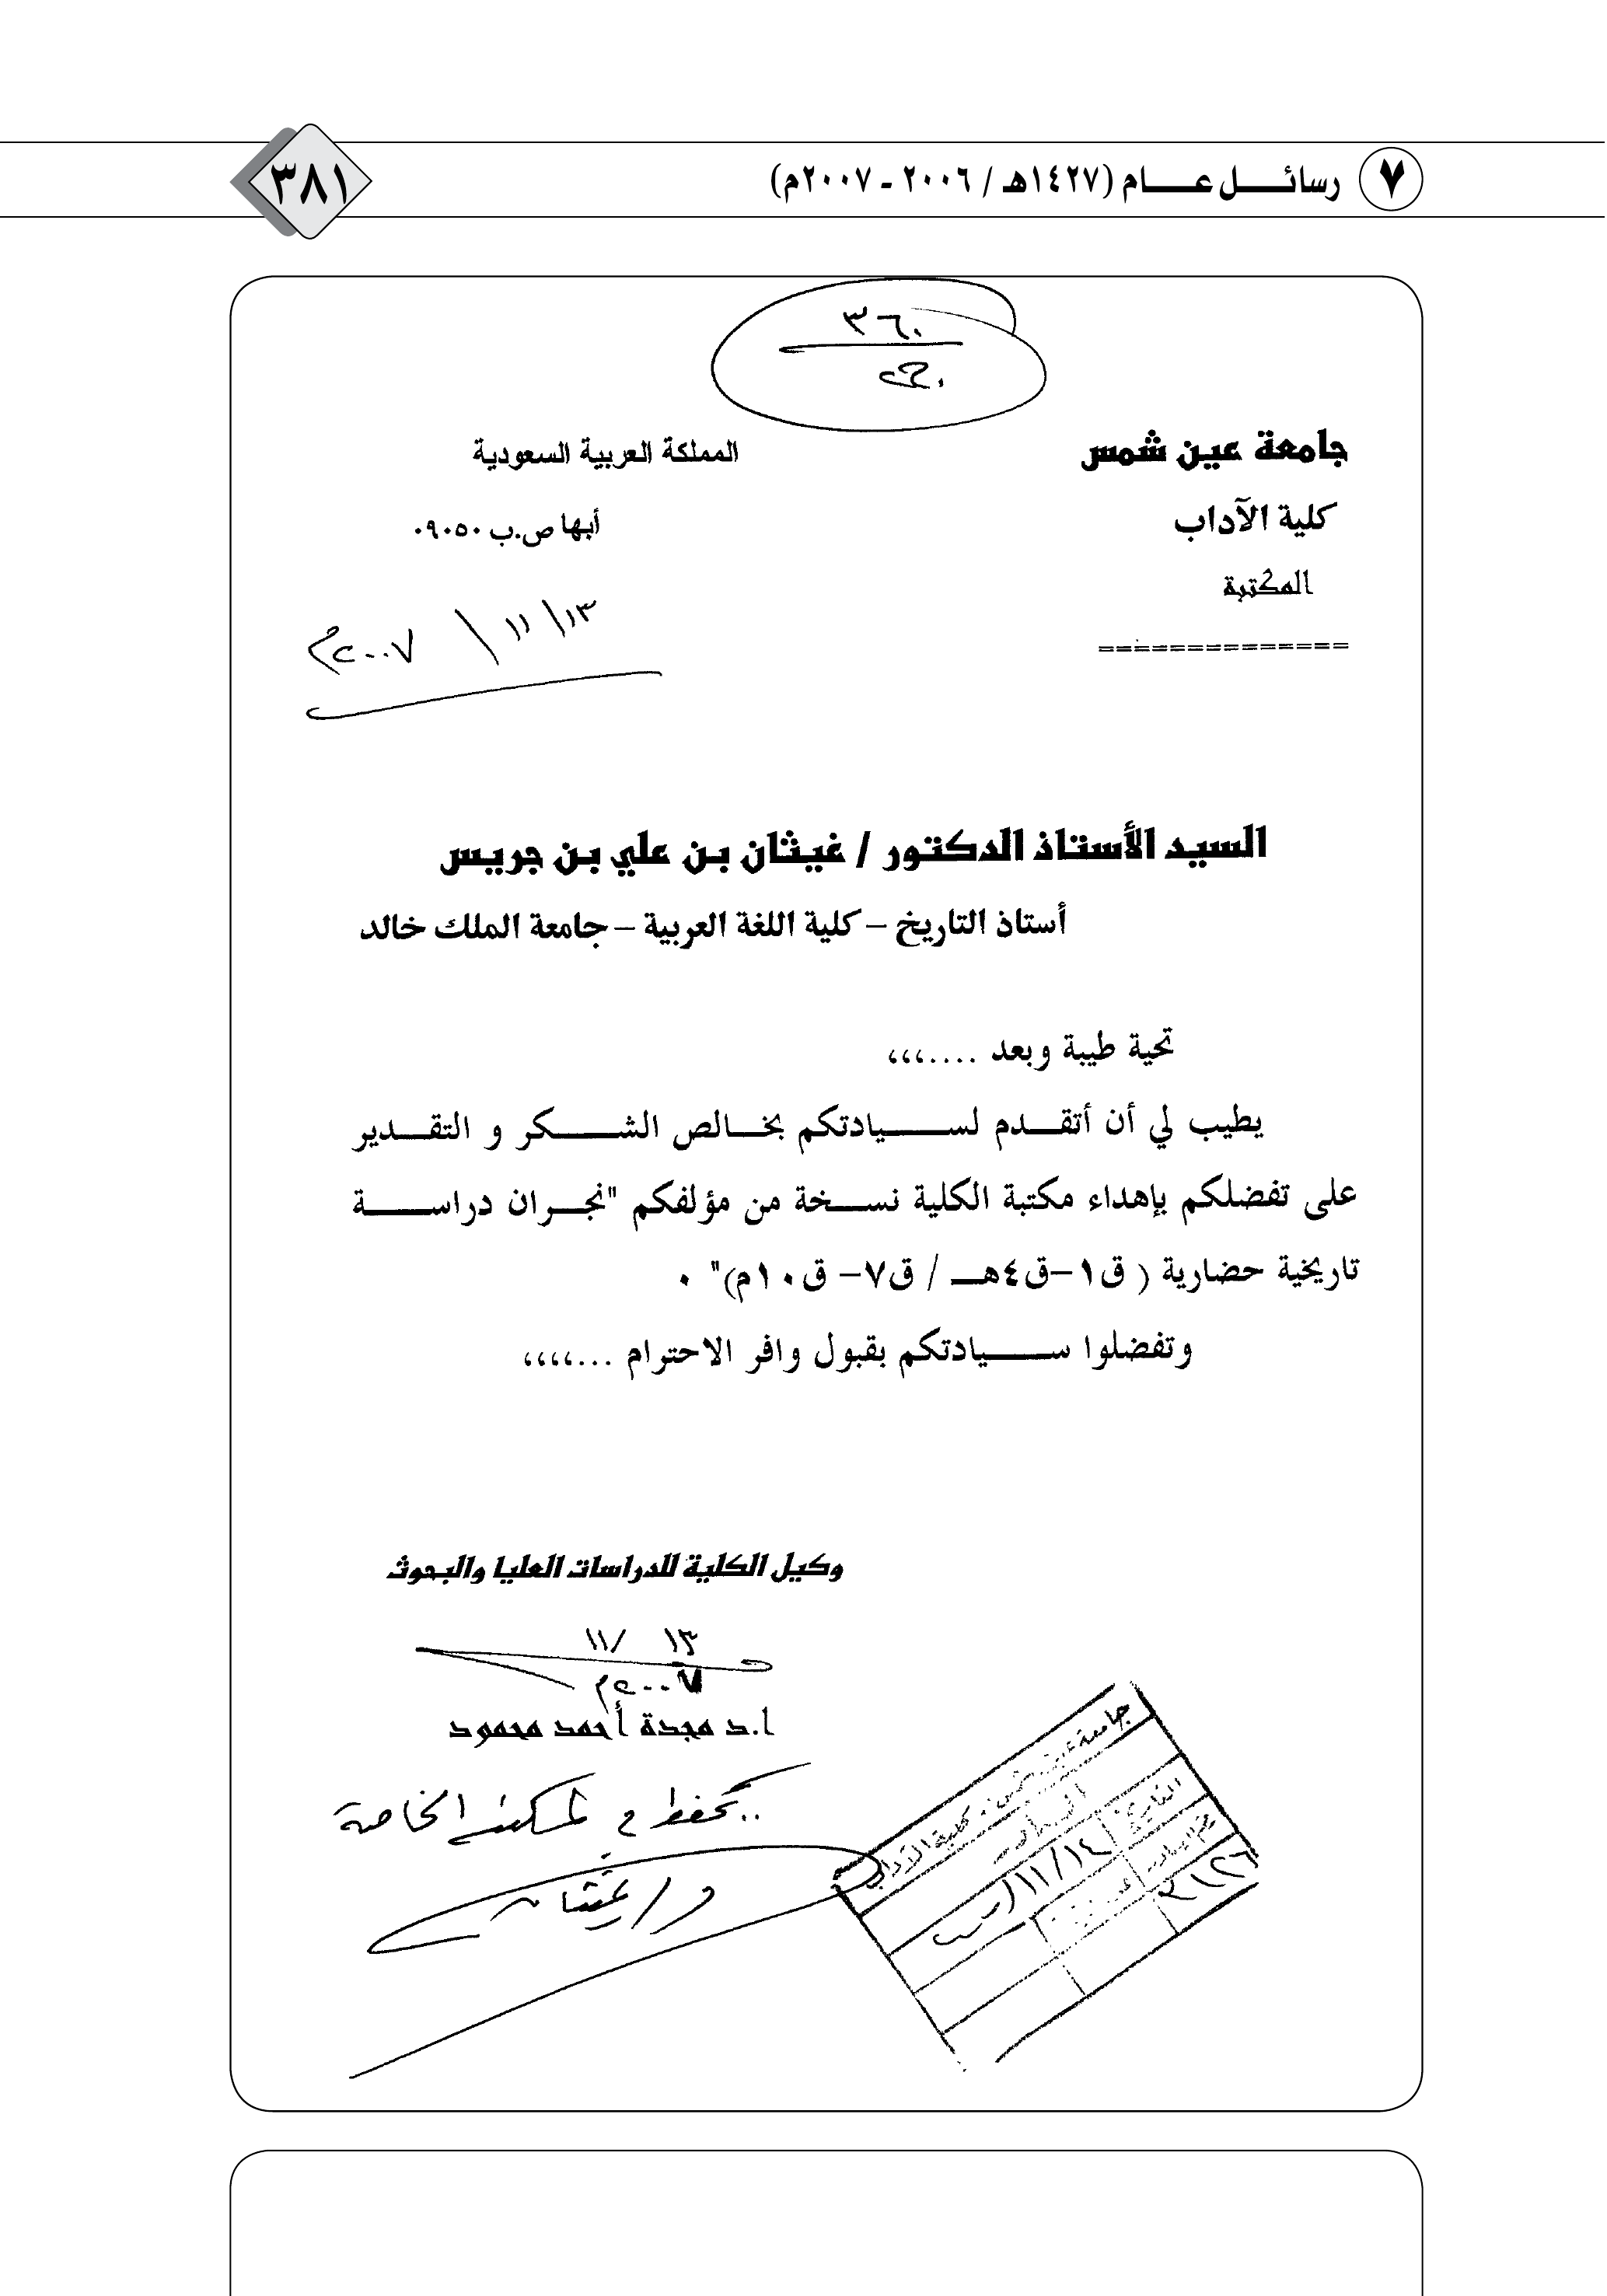 ٧ رسائل عام (١٤٢٧هـ / ٢٠٠٦ - ٢٠٠٧م)
٣٨١
٣٦٠
جامعة عين شمس
المملكة العربية السعودية
كلية الآداب
أبها ص.ب ٠٩٠٥٠
المكتبة
==============
١٣/١١/٢٠٠٧م
السيد الأستاذ الدكتور / غيثان بن علي بن جريس
أستاذ التاريخ – كلية اللغة العربية – جامعة الملك خالد
تحية طيبة وبعد ....،،،
يطيب لي أن أتقدم لسيادتكم بخالص الشكر و التقدير
على تفضلكم بإهداء مكتبة الكلية نسخة من مؤلفكم "نجران دراسة
تاريخية حضارية ( ق١-ق٤هـ / ق٧- ق١٠م)" ٠
وتفضلوا سيادتكم بقبول وافر الاحترام ...،،،،
وكيل الكلية للدراسات العليا والبحوث
١٣ /١١
٢٠٠٧م
ا.د مجدة أحمد محمود
تحفظ في المكتبة الخاصة
د/ غيثان
جامعة عين شمس . كلية الآداب
التاريخ ١١/١٤
٢١٢٦